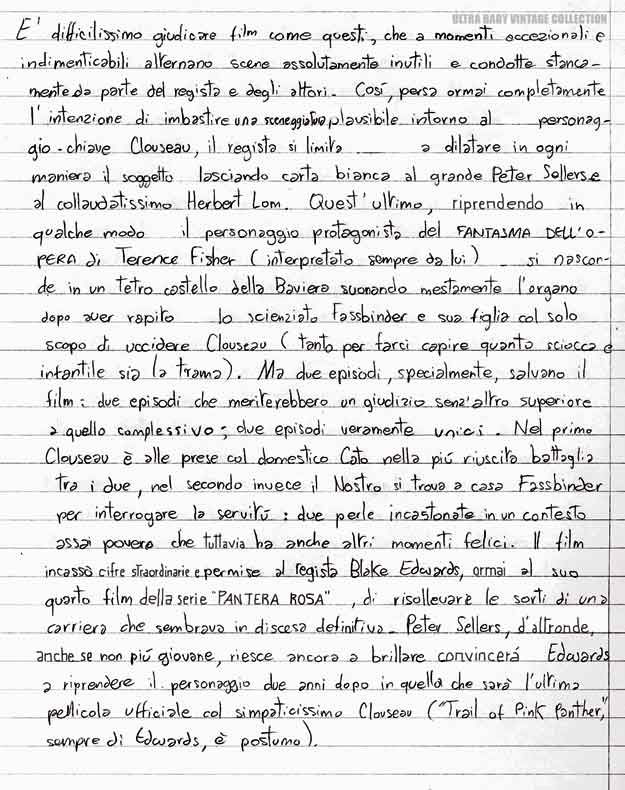 ULTRA BABY VINTAGE COLLECTION
E' difficilissimo giudicare film come questi, che a momenti eccezionali e
indimenticabili alternano scene assolutamente inutili e condotte stanca-
mente da parte del regista e degli attori. Così, persa ormai completamente
l'intenzione di imbastire una sceneggiatura plausibile intorno al personag-
gio-chiave Clouseau, il regista si limita a dilatare in ogni
maniera il soggetto lasciando carta bianca al grande Peter Sellers e
al collaudatissimo Herbert Lom. Quest'ultimo, riprendendo in
qualche modo il personaggio protagonista del FANTASMA DELL'O-
PERA di Terence Fisher (interpretato sempre da lui) si nascon-
de in un tetro castello della Baviera suonando mestamente l'organo
dopo aver rapito lo scienziato Fassbinder e sua figlia col solo
scopo di uccidere Clouseau (tanto per farci capire quanto sciocca e
infantile sia la trama). Ma due episodi, specialmente, salvano il
film: due episodi che meriterebbero un giudizio senz'altro superiore
a quello complessivo; due episodi veramente unici. Nel primo
Clouseau è alle prese col domestico Cato nella più riuscita battaglia
tra i due, nel secondo invece il Nostro si trova a casa Fassbinder
per interrogare la servitù: due perle incastonate in un contesto
assai povero che tuttavia ha anche altri momenti felici. Il film
incassò cifre straordinarie e permise al regista Blake Edwards, ormai al suo
quarto film della serie "PANTERA ROSA", di risollevare le sorti di una
carriera che sembrava in discesa definitiva. Peter Sellers, d'altronde,
anche se non più giovane, riesce ancora a brillare convincerà Edwards
a riprendere il personaggio due anni dopo in quella che sarà l'ultima
pellicola ufficiale col simpaticissimo Clouseau ("Trail of Pink Panther,"
sempre di Edwards, è postumo).